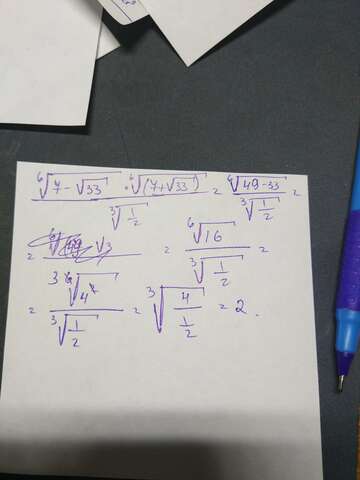 ⁶√(7 - √33) · ⁶√((7+√33)) / ³√(1/2) = ⁶√(49-33) / ³√(1/2) =
= = ⁶√16 / ³√(1/2) =
= ³ ⁶√(4²) / ³√(1/2) = ³√(4 / (1/2)) = 2.